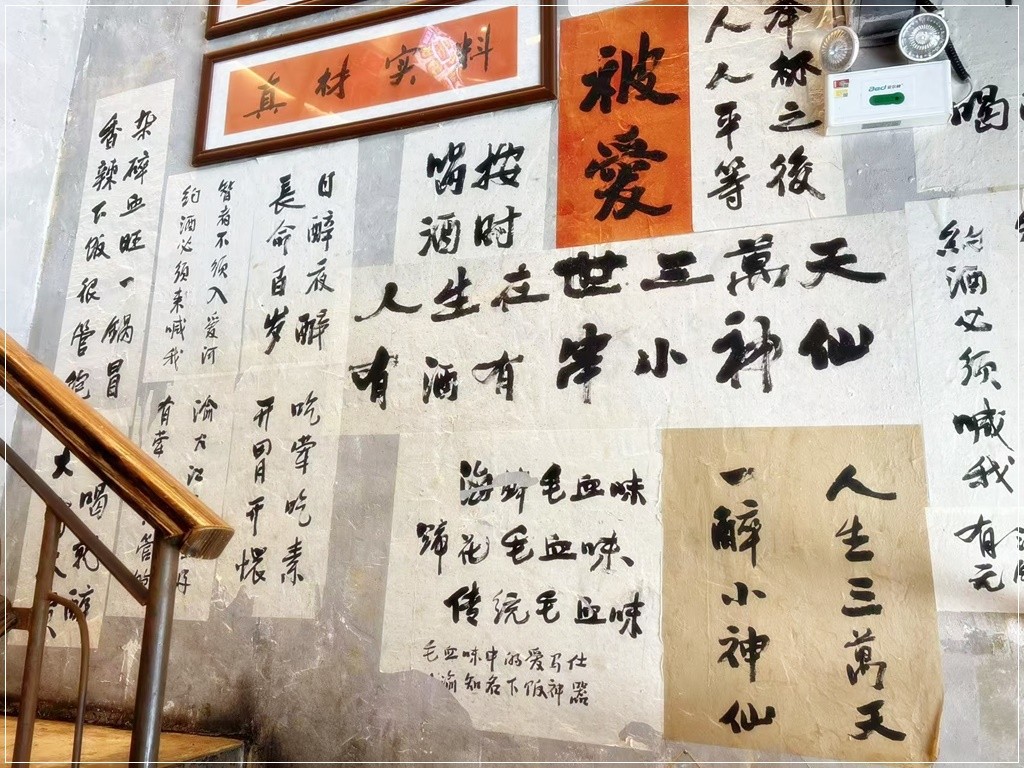 真材实料
被爱
人人平等
杯之後
喝
按时
喝酒
杂碎血旺一锅冒
香辣下饭很管
智者不须入爱河
约酒必须来喊我
日醉夜醉
長命百岁
人生在世三萬天
有酒有串小神仙
约酒必须喊我
有元
吃荤吃素
开胃开煨
有荤
渝
大
喝
毛血味
蹄花毛血味
传统毛血味
毛血味中的爱马仕
渝知名下饭神器
人生三萬天
一醉小神仙